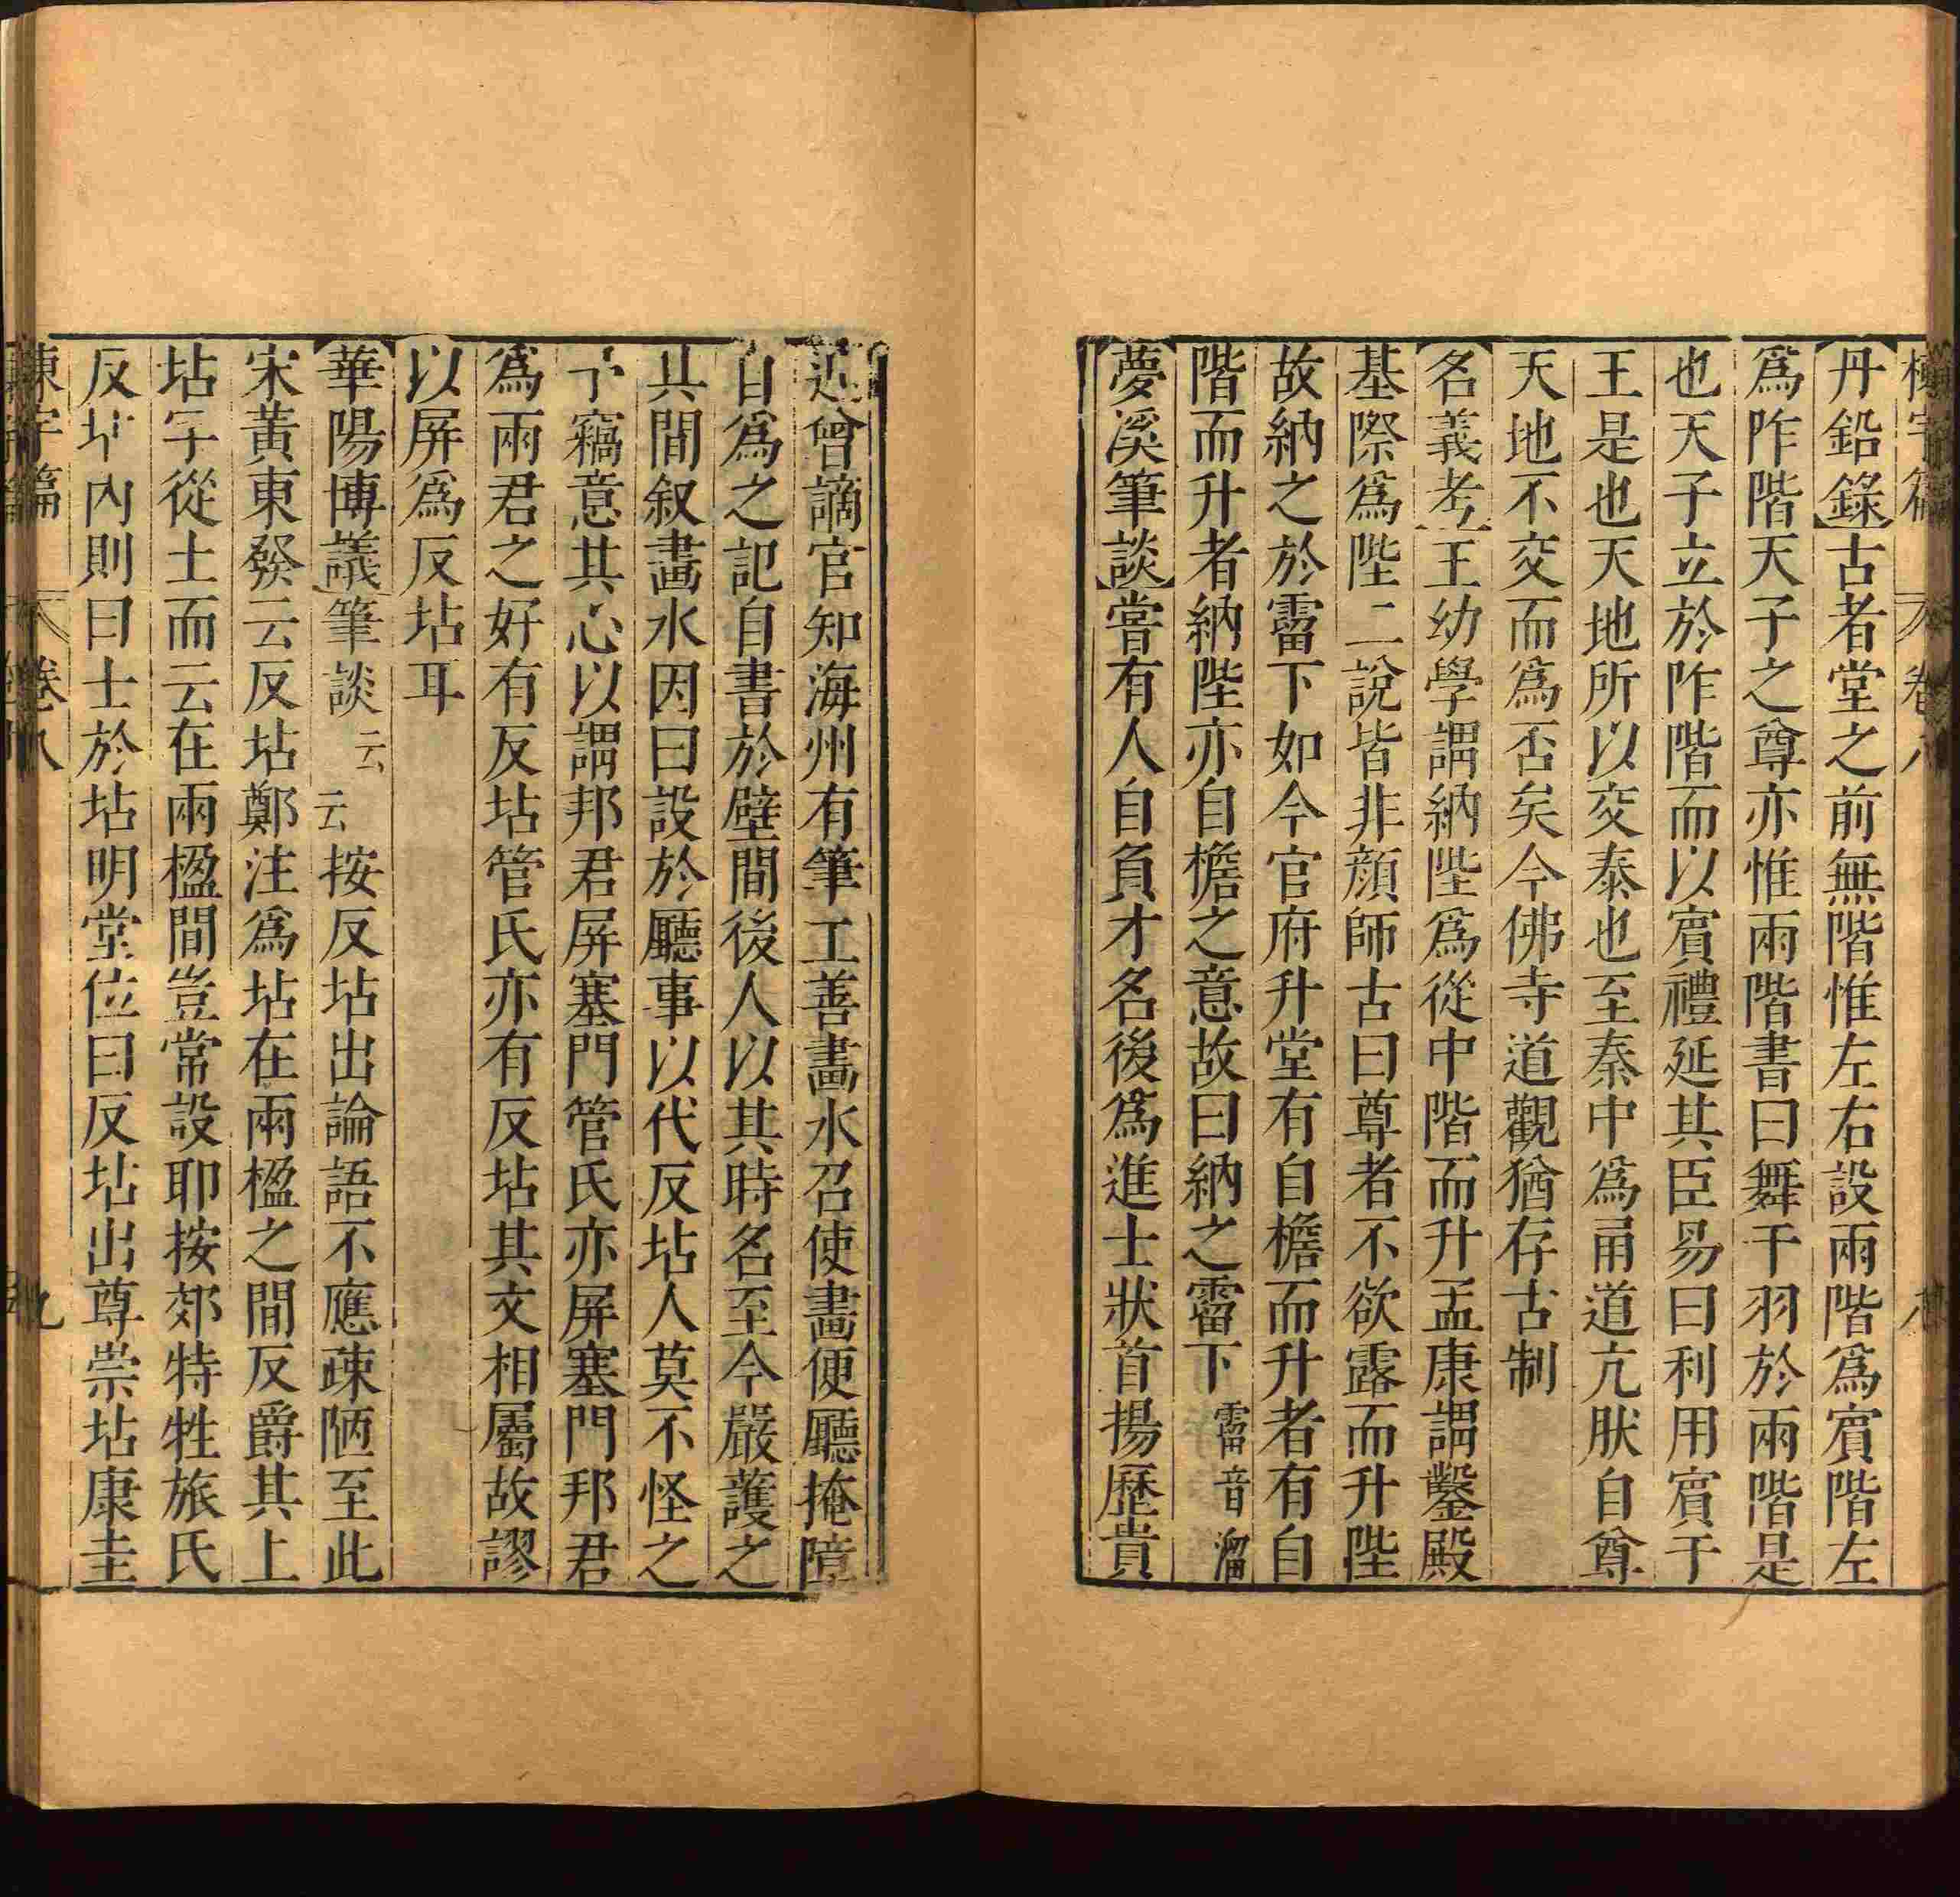 丹鉛錄古者堂之前無階惟左右設兩階爲賔階左
爲阼階天子之尊亦惟兩階書曰舞干羽於兩階是
也天子立於阼階而以賔禮延其臣易曰利用賔于
王是也天地所以交泰也至秦中爲甬道亢肰自尊
天地不交而爲否矣今佛寺道觀猶存古制
名義考王幼學謂納陛爲從中階而升孟康謂鑿殿
基際爲陛二說皆非顔師古曰尊者不欲露而升陛
故納之於霤下如今官府升堂有自檐而升者有自
階而升者納陛亦自檐之意故曰納之霤下霤音溜
夢溪筆談嘗有人自負才名後爲進士狀首揚歷貴
近曾謫官知海州有筆工善畵水召使畵便廳掩障
自爲之記自書於壁間後人以其時名至今嚴護之
其間叙畵水因曰設於廳事以代反坫人莫不怪之
予竊意其心以謂邦君屏塞門管氏亦屏塞門邦君
爲兩君之好有反坫管氏亦有反坫其文相屬故謬
以屏爲反坫耳
華陽博議筆談云云按反坫出論語不應疎陋至此
宋黃東發云反坫鄭注爲坫在兩楹之間反爵其上
坫字從土而云在兩楹間豈常設耶按郊特牲旅氏
反坫內則曰士於坫明堂位曰反坫出尊崇坫康圭
卷八
九